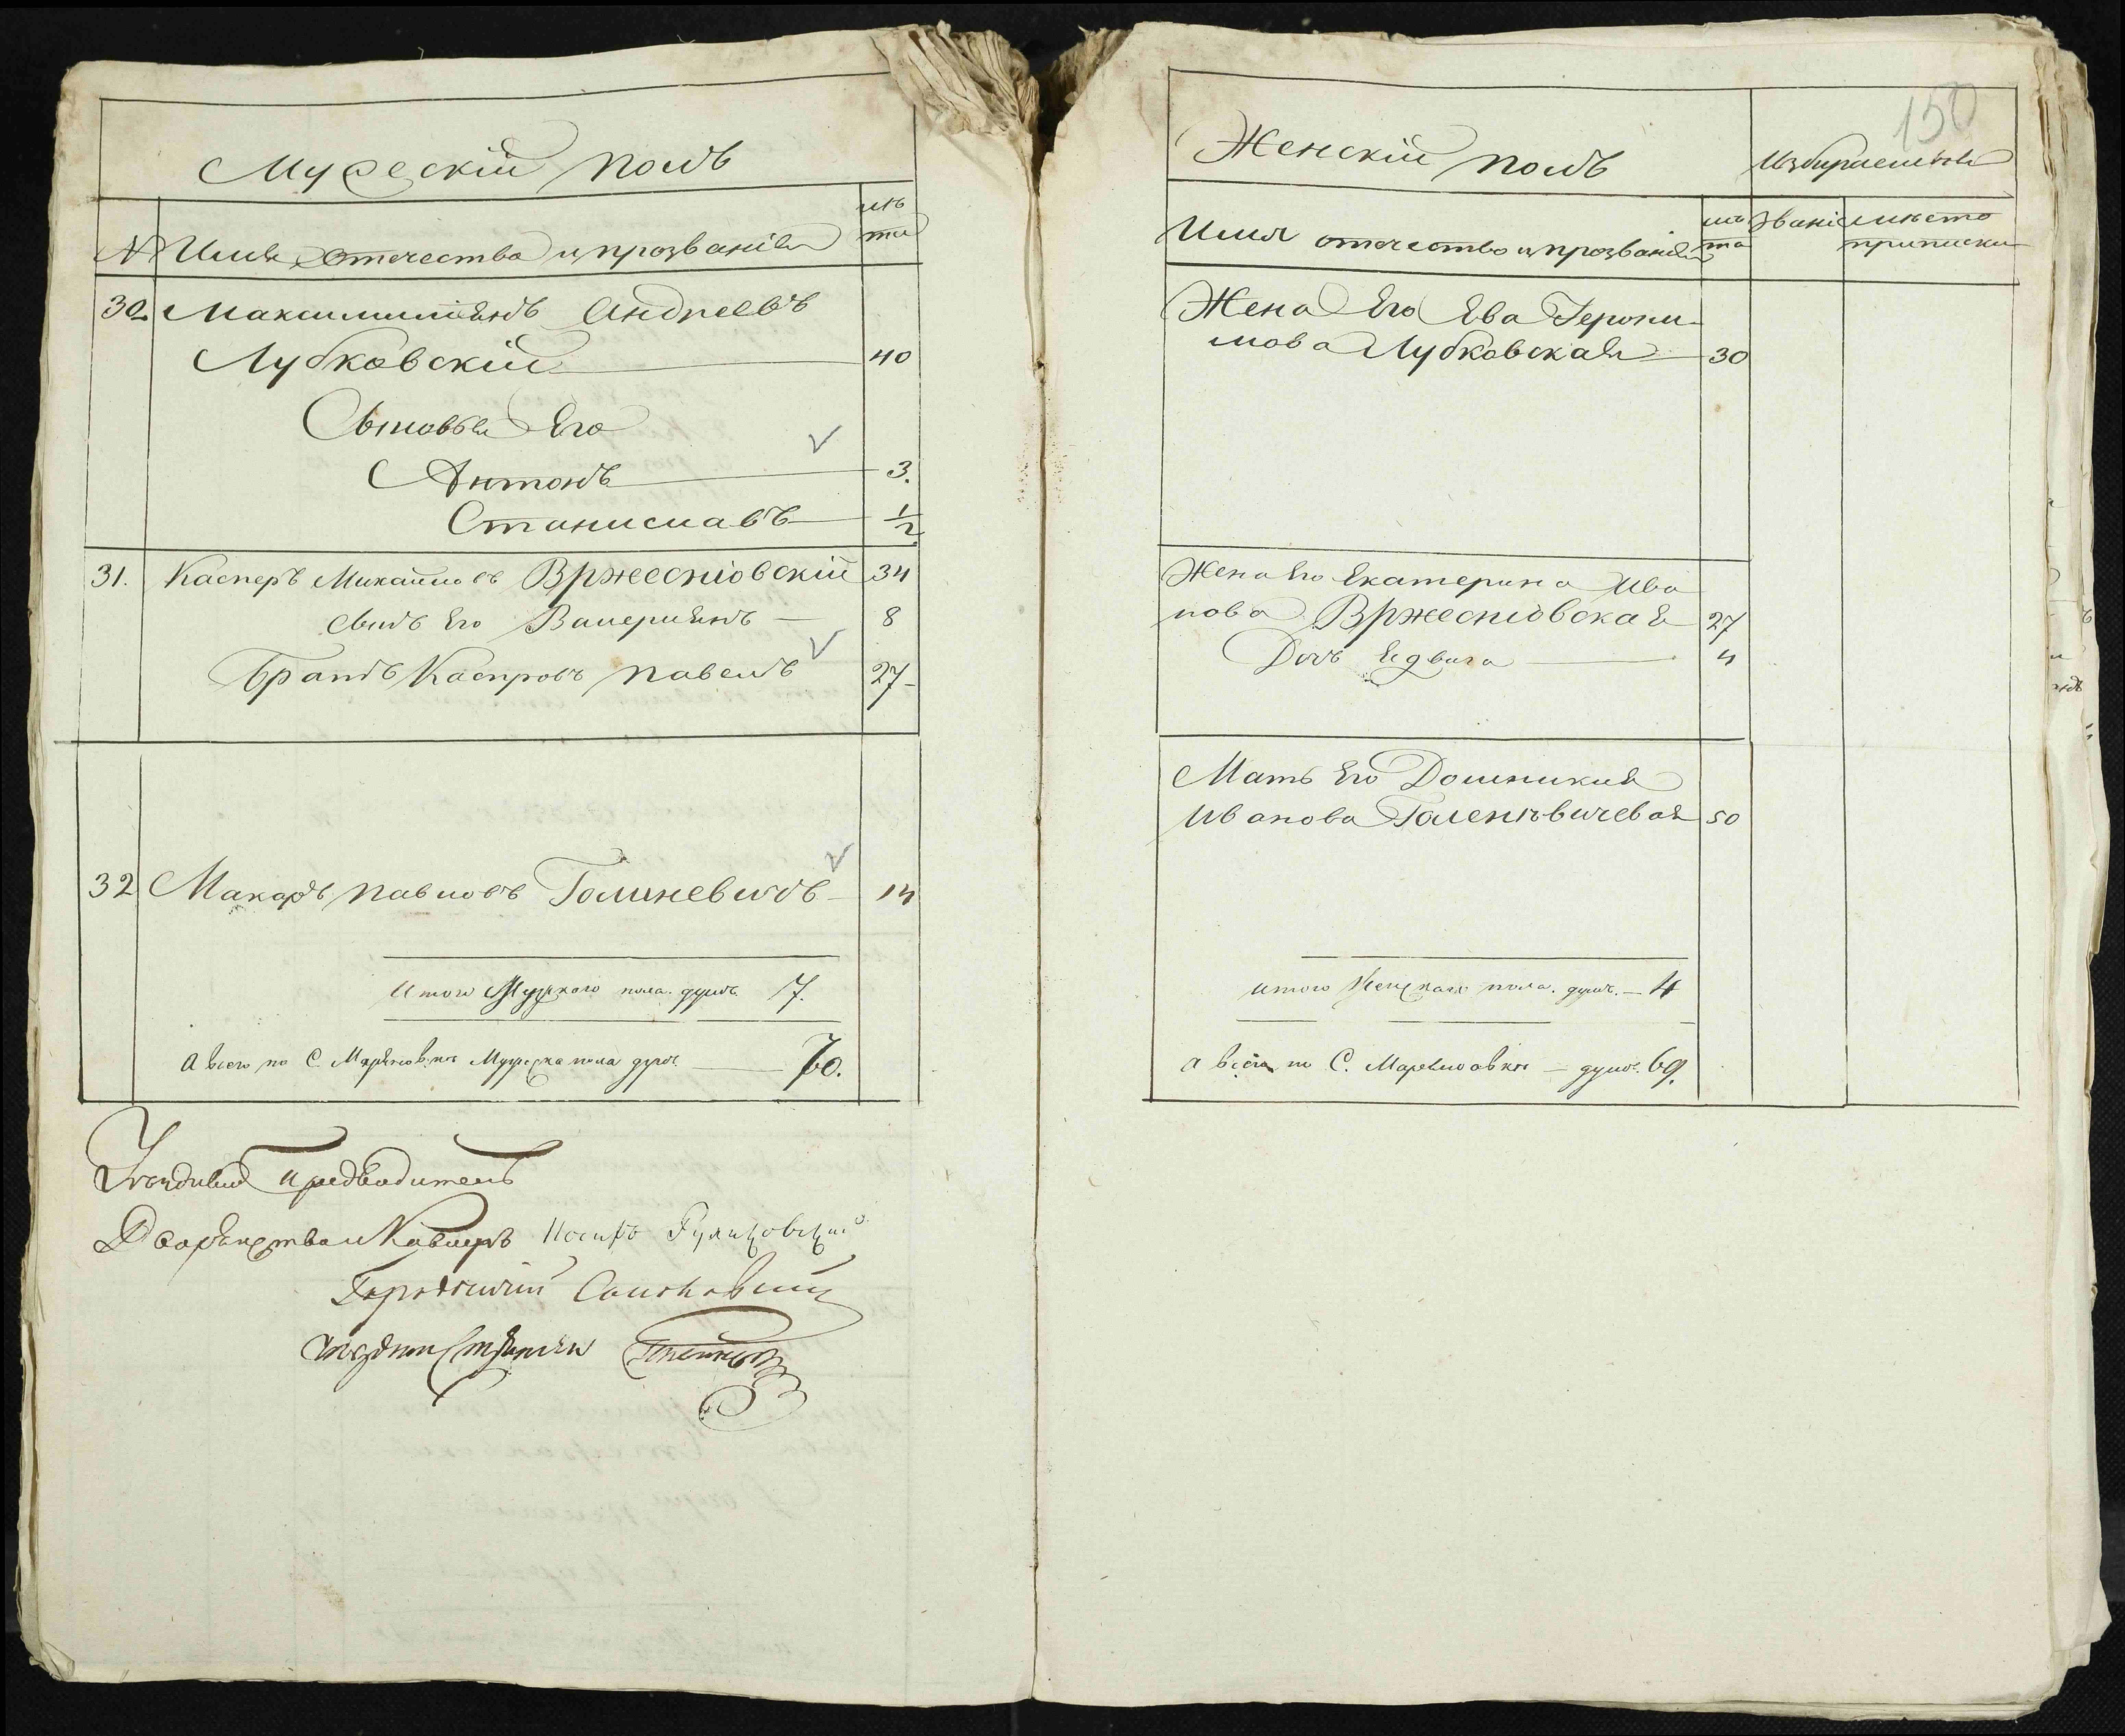 Мужескій полъ
№ Имя отечества и прозванія
лѣ
та
30. Максимиліянъ Андреевъ
Лубковскій 40
Сыновья Его
Антонъ 3.
Станиславъ 1/2
31. Касперъ Михайловъ Вржесніовскій 34
сынъ Его Валеріянъ 8
Братъ Каспровъ Павелъ 27
32 Макаръ Павловъ Голиневичъ 14
Итого Мужскаго пола душъ 7.
А всего по С. Марьяновки Мужеска пола душъ 70.
Уѣздный Предводитель
Дворянства и Кавалеръ Иосифъ
Городничій
150
Женскій полъ
Избираемыя
Имя отечество и прозванія
лѣ
та
Званіе
мѣсто
приписки
Жена Его Ева Герони
мова Лубковская 30
Жена Его Екатерина Ива
нова Вржесніовская 27
Дочь Ядвига 4
Мать Его Доминикия
Иванова Голенѣвичевая 50
итого Женскаго пола. душъ. 4
А всего по С. Марьяновки душъ. 69.